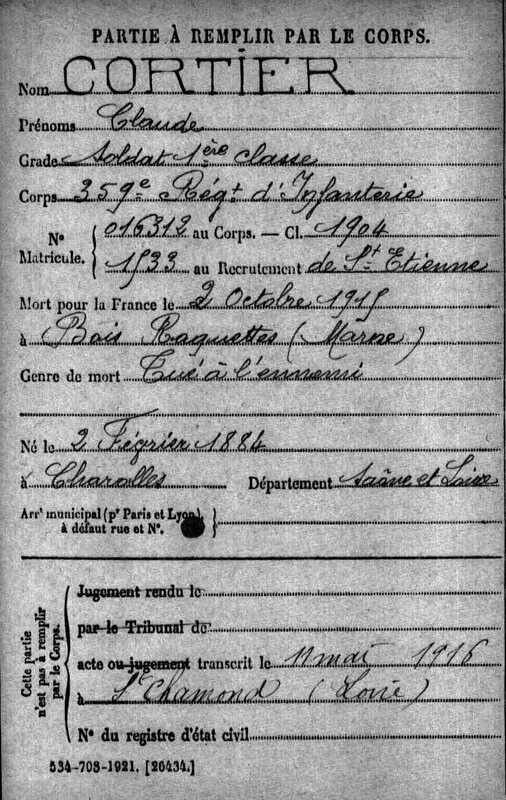 PARTIE À REMPLIR PAR LE CORPS.
Nom CORTIER
Prénoms Claude
Grade Soldat 1ère classe
Corps 359e Régt d'Infanterie
N° Matricule. 016312 au Corps. — Cl. 1904
1533 au Recrutement de St Etienne
Mort pour la France le 2 Octobre 1915
à Bois Raquettes (Marne)
Genre de mort Tué à l'ennemi
Né le 2 Février 1884
à Charolles Département Saône et Loire
Arrt municipal (pr Paris et Lyon),
à défaut rue et N°.
Cette partie n'est pas à remplir par le Corps.
Jugement rendu le
par le Tribunal de
acte ou jugement transcrit le 11 mai 1916
à St Chamond (Loire)
N° du registre d'état civil
534-708-1921. [26434.]